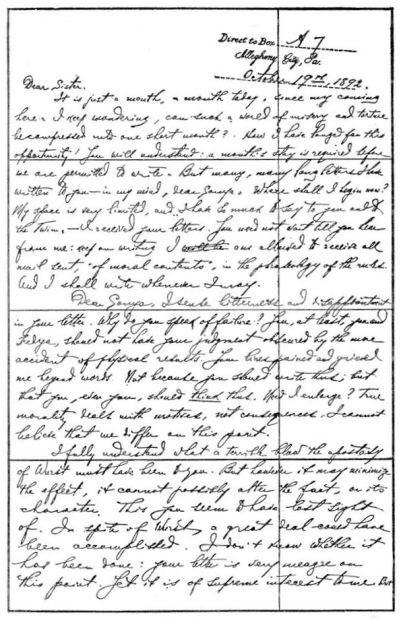 Direct to Box A 7
Allegheny City, Pa.
October 19th, 1892.
Dear Sister.
It is just a month, a month today, since my coming
here. I keep wondering, can such a world of misery and torture
be compressed into one short month? How I have longed for this
opportunity! You will understand: a month's stay is required before
we are permitted to write. But many, many long letters I have
written to you—in my mind, dear Sonya. Where shall I begin now?
My space is very limited, and I have so much to say to you and to
the Twin.—I received your letters. You need not wait till you hear
from me: keep on writing. I am allowed to receive all
mail sent, "of moral contents", in the phraseology of the rules.
And I shall write whenever I may.
Dear Sonya, I sense bitterness and disappointment
in your letter. Why do you speak of failure? You, at least, you and
Fedya, should not have your judgment obscured by the mere
accident of physical results. Your lines pained and grieved
me beyond words. Not because you should write thus; but
that you, even you, should think thus. Need I enlarge? True
morality deals with motives, not consequences. I cannot
believe that we differ on this point.
I fully understand what a terrible blow the apostasy
of Wurst must have been to you. But however it may minimize
the effect, it cannot possibly alter the fact or its
character. This you seem to have lost sight
of. In spite of Wurst, a great deal could have
been accomplished. I don't know whether it
has been done: your letter is very meagre on
this point. Yet it is of supreme interest to me. But